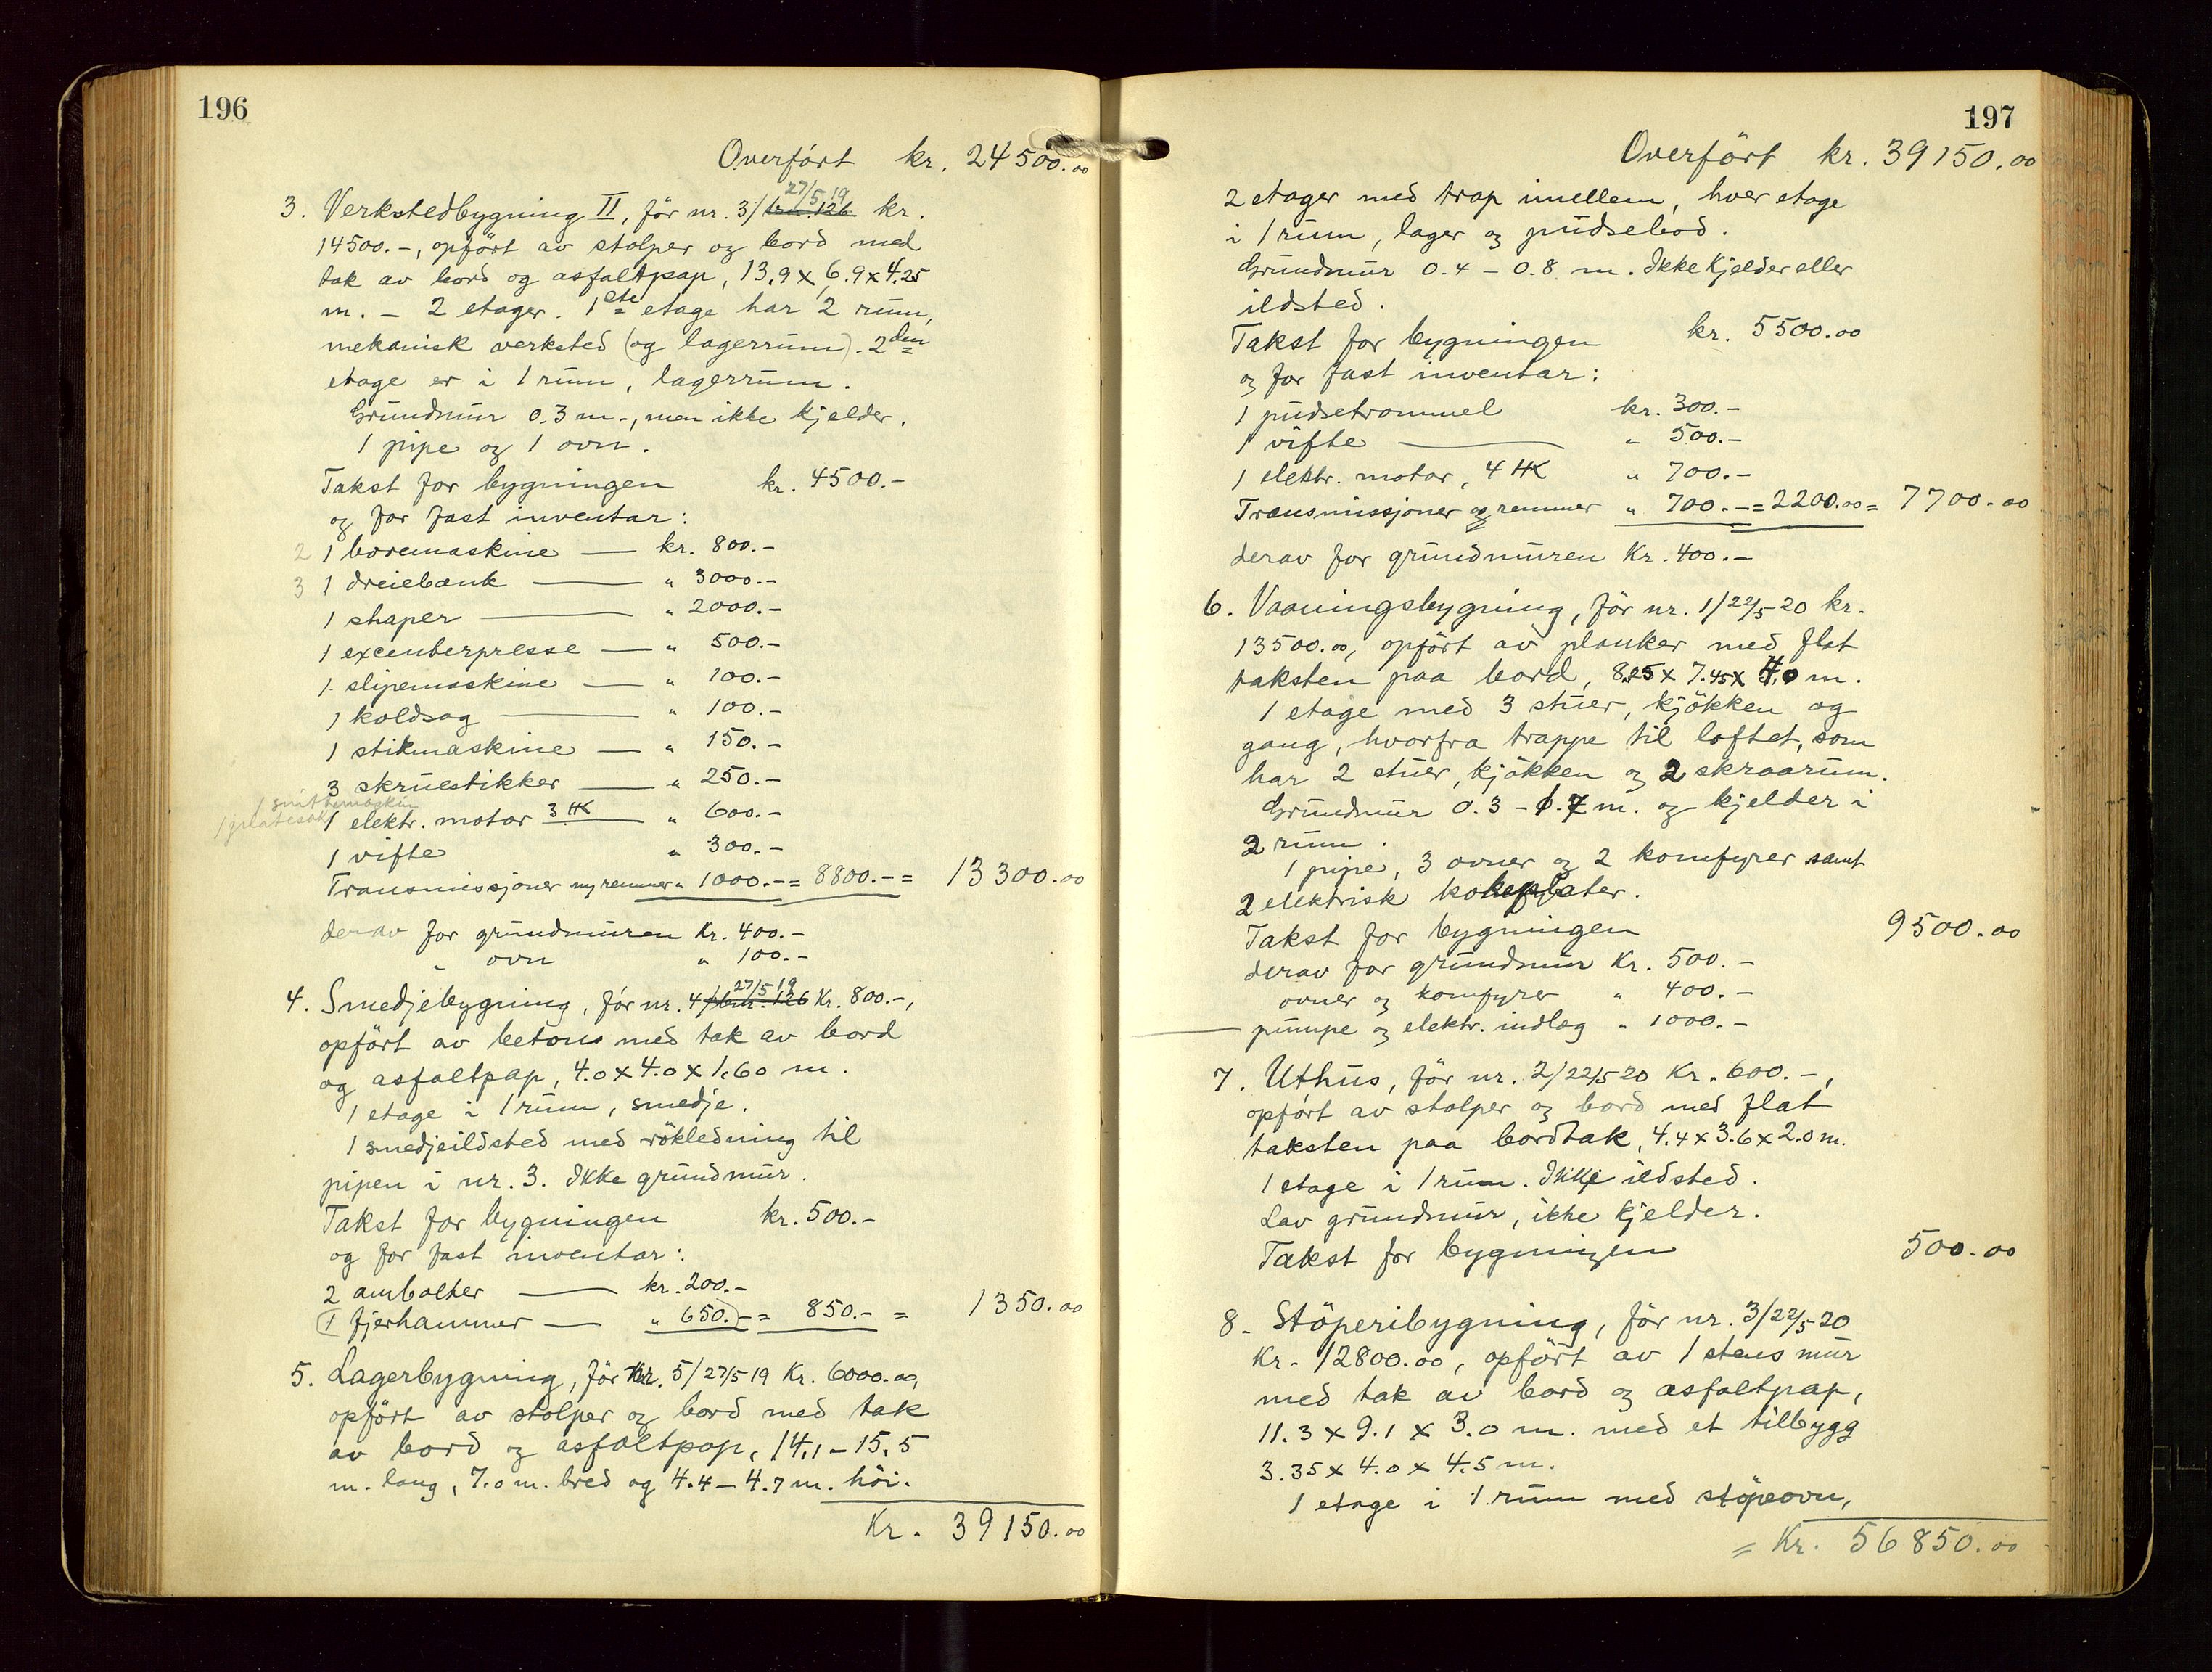 196
Overført kr. 24500.00
27/5 19
3. Verkstedbygning II, før nr. 3/brn. 126 kr.
14500.-, opført av stolper og bord med
tak av bord og asfaltpap, 13.9 x 6.9 x 4.25
m. - 2 etager. 1ste etage har 2 rum,
mekanisk verksted (og lagerrum). 2den
etage er i 1 rum, lagerrum.
Grundmur 0.3 m-, men ikke kjelder.
1 pipe og 1 ovn.
Takst for bygningen kr. 4500.-
og for fast inventar:
2 1 boremaskine — kr. 800.-
3 1 dreiebænk — " 3000.-
1 shaper — " 2000.-
1 excenterpresse — " 500.-
1 slipemaskine — " 100.-
1 koldsag — " 100.-
1 stikmaskine — " 150.-
3 skruestikker — " 250.-
1 snittemaskin
1 platesaks
1 elektr. motor 3 HK " 600.-
1 vifte " 300.-
Transmissjoner og remmer " 1000.- = 8800.- = 13300.00
derav for grundmuren Kr. 400.-
" ovn " 100.-
27/5 19
4. Smedjebygning, før nr. 4/brnr. 126 Kr. 800.-,
opført av betons med tak av bord
og asfaltpap, 4.0 x 4.0 x 1.60 m.
1 etage i 1 rum, smedje.
1 smedjeildsted med røkledning til
pipen i nr. 3. Ikke grundmur.
Takst for bygningen kr. 500.-
og for fast inventar:
2 ambolter — kr. 200.-
(1 fjerhammer — " 650.)- = 850.- = 1350.00
5. Lagerbygning, før nr. 5/27/5 19 Kr. 6000.00,
opført av stolper og bord med tak
av bord og asfaltpap, 14,1 - 15,5
m. lang, 7.0 m. bred og 4.4 - 4.7 m. høi.
Kr. 39150.00
197
Overført kr. 39150.00
2 etager med trap imellem, hver etage
i 1 rum, lager og pudsebod.
Grundmur 0.4 - 0.8 m. Ikke kjelder eller
ildsted.
Takst for bygningen kr. 5500.00
og for fast inventar:
1 pudsetrommel kr. 300.-
1 vifte — " 500.-
1 elektr. motor, 4 HK " 700.-
Transmissjoner og remmer " 700.- = 2200.00 = 7700.00
derav for grundmuren Kr. 400.-
6. Vaaningsbygning, før nr. 1/22/5 20 kr.
13500.00, opført av planker med flat
taksten paa bord, 8.25 x 7.45 x 4.0 m.
1 etage med 3 stuer, kjøkken og
gang, hvorfra trappe til loftet, som
har 2 stuer, kjøkken og 2 skraarum.
Grundmur 0.3 - 1.7 m. og kjelder i
2 rum.
1 pipe, 3 ovner og 2 komfyrer samt
2 elektrisk kokeplater.
Takst for bygningen 9500.00
derav for grundmur Kr. 500.-
ovner og komfyrer " 400.-
pumpe og elektr. indlæg " 1000.-
7. Uthus, før nr. 2/22/5 20 Kr. 600.-,
opført av stolper og bord med flat
taksten paa bordtak, 4.4 x 3.6 x 2.0 m.
1 etage i 1 rum. Ikke ildsted.
Lav grundmur, ikke kjelder.
Takst for bygningen 500.00
8. Støperibygning, før nr. 3/22/5 20
Kr. 12800.00, opført av 1 stens mur
med tak av bord og asfaltpap,
11.3 x 9.1 x 3.0 m. med et tilbygg
3.35 x 4.0 x 4.5 m.
1 etage i 1 rum med støpeovn,
= Kr. 56850.00